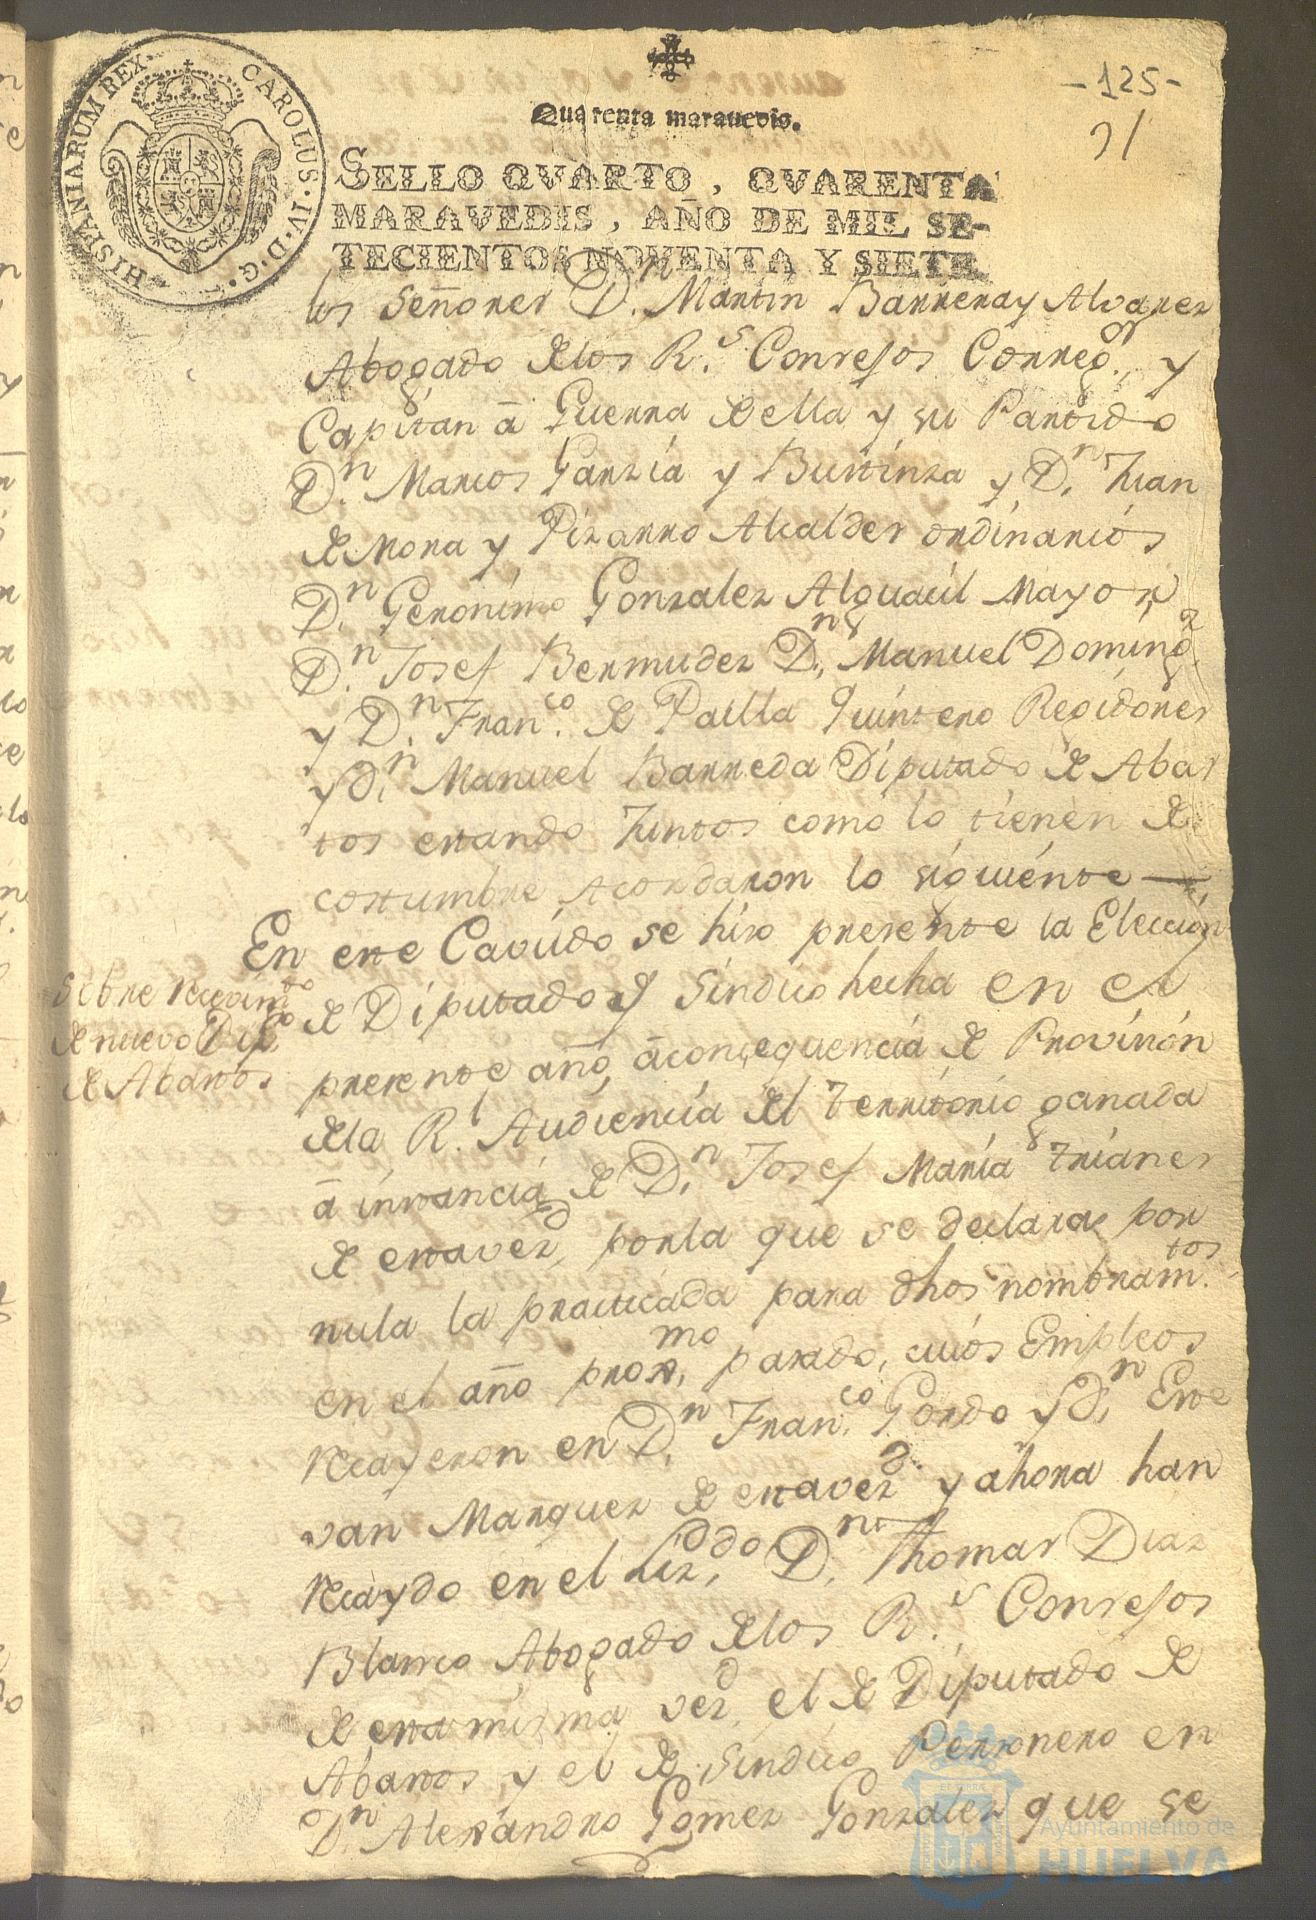 -125-
91
Quarenta marauedis.
HISPANIARUM REX · CAROLUS · IV · D · G ·
SELLO QVARTO, QVARENTA
MARAVEDIS, AÑO DE MIL SE-
TECIENTOS NOVENTA Y SIETE
los Señores D.n Martin Barrera y Alvarez
Abogado de los R.s Consejos Correg.or y
Capitan â Guerra de ella y su Partido
D.n Marcos Garzia y Bustinza y D.n Juan
de Mora y Pizarro Alcaldes ordinarios
D.n Geronimo Gonzalez Alguacil Mayor
D.n Josef Bermudez D.n Manuel Doming.z
y D.n Fran.co de Paula Quintero Regidores
y d.n Manuel Barreda Diputado de Abas
tos estando Juntos como lo tienen de
costumbre acordaron lo siguiente
Sobre recevim.to
de nuevo Dip.do
de Abastos
En este Cavildo se hizo presente la Elección
de Diputado y Sindico hecha en el
presente año, â consequencia de Provision
de la R.l Audiencia del territorio ganada
â instancia de D.n Josef María Trianes
de esta vez.d, por la que se declara por
nula la practicada para dhos nombram.tos
en el año prox.mo pasado, cuios Empleos
recayeron en D.n Fran.co Gordo y d.n Este
van Marquez de esta vez.d y ahora han
recaydo en el Liz.do D.n Thomas Diaz
Blanco Abogado de los R.s Consejos
de esta misma vez.d el de Diputado de
Abastos y el de Sindico Personero en
D.n Alexandro Gomez Gonzalez que se
Ayuntamiento de
HUELVA